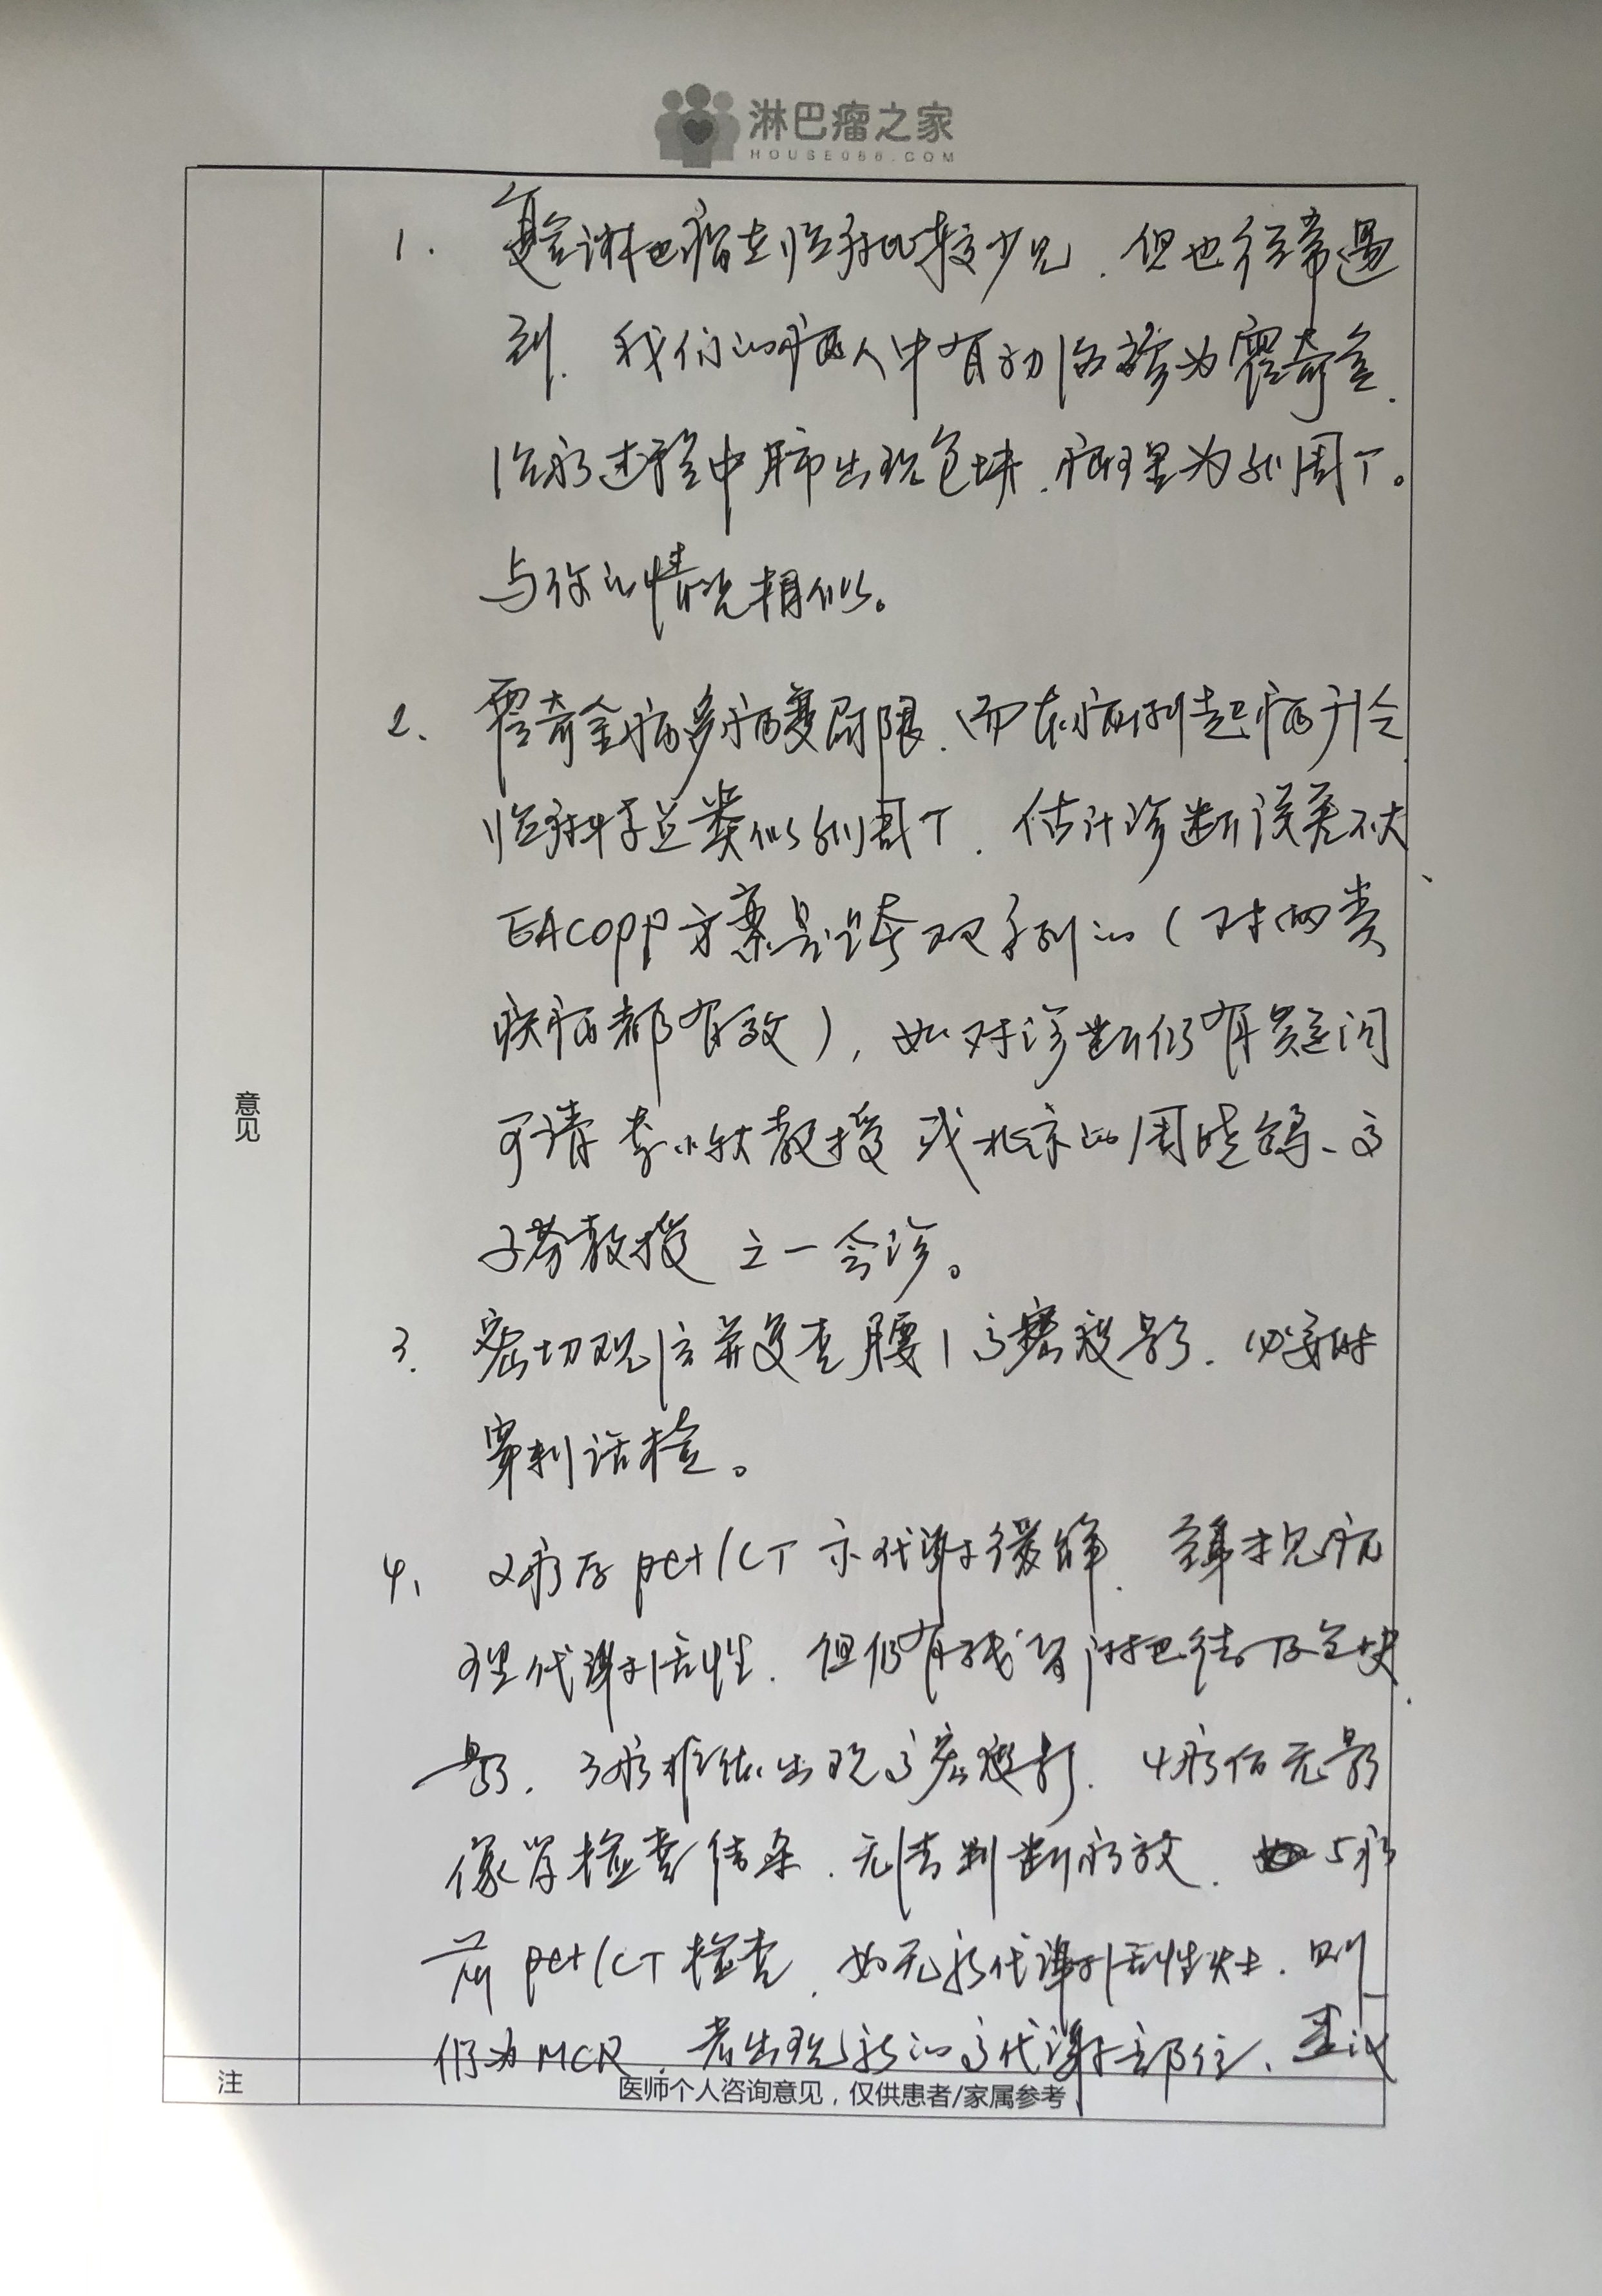 淋巴瘤之家
HOUSE086.COM
1. 复合淋巴瘤在临床比较少见，但也经常遇
到，我们的病人中有初治诊为霍奇金，
治疗过程中肺出现包块，病理为外周T。
与你的情况相似。
2、霍奇金病多病变局限，而本病例起病
临床 类似外周T，估计诊断误差不大、
EACOPP方案是 的（对两类
疾病都有效），如对诊断仍有疑问
可请李小秋教授或北京的周晓鸽、高
子芬教授之一会诊。
意见
3. 密切观 并复查腰1高密度影，必要时
穿刺活检。
4、2疗后pet/CT示代谢缓解， 未见病
理代谢活性，但仍有残留淋巴结
影，3疗 出现高密度影，4疗后无影
像学检查结果，无法判断疗效，5疗
前pet/CT检查，如无新代谢活性灶，则
仍为MCR，若出现新的高代谢部位、建议
注
医师个人咨询意见，仅供患者/家属参考